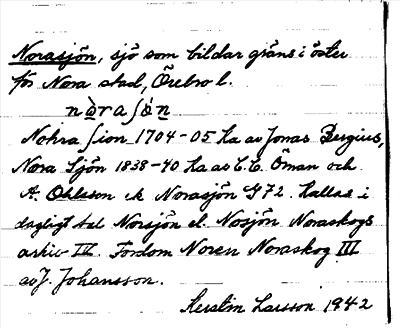 Norasjön, sjö som bildar gräns i öster
för Nora stad, Örebro l.
nòraʃö́n
Nohra Sion 1704-05 Ka av Jonas Bergius,
Nora Sjön 1838-40 Ka av C. E. Öman och
A. Ohlsson ek Norasjön G 72. Kallas i
dagligt tal Norsjön el. Nosjön Noraskogs
arkiv IV. Fordom Noren Noraskog III
av J. Johansson.
Kerstin Larsson 1942